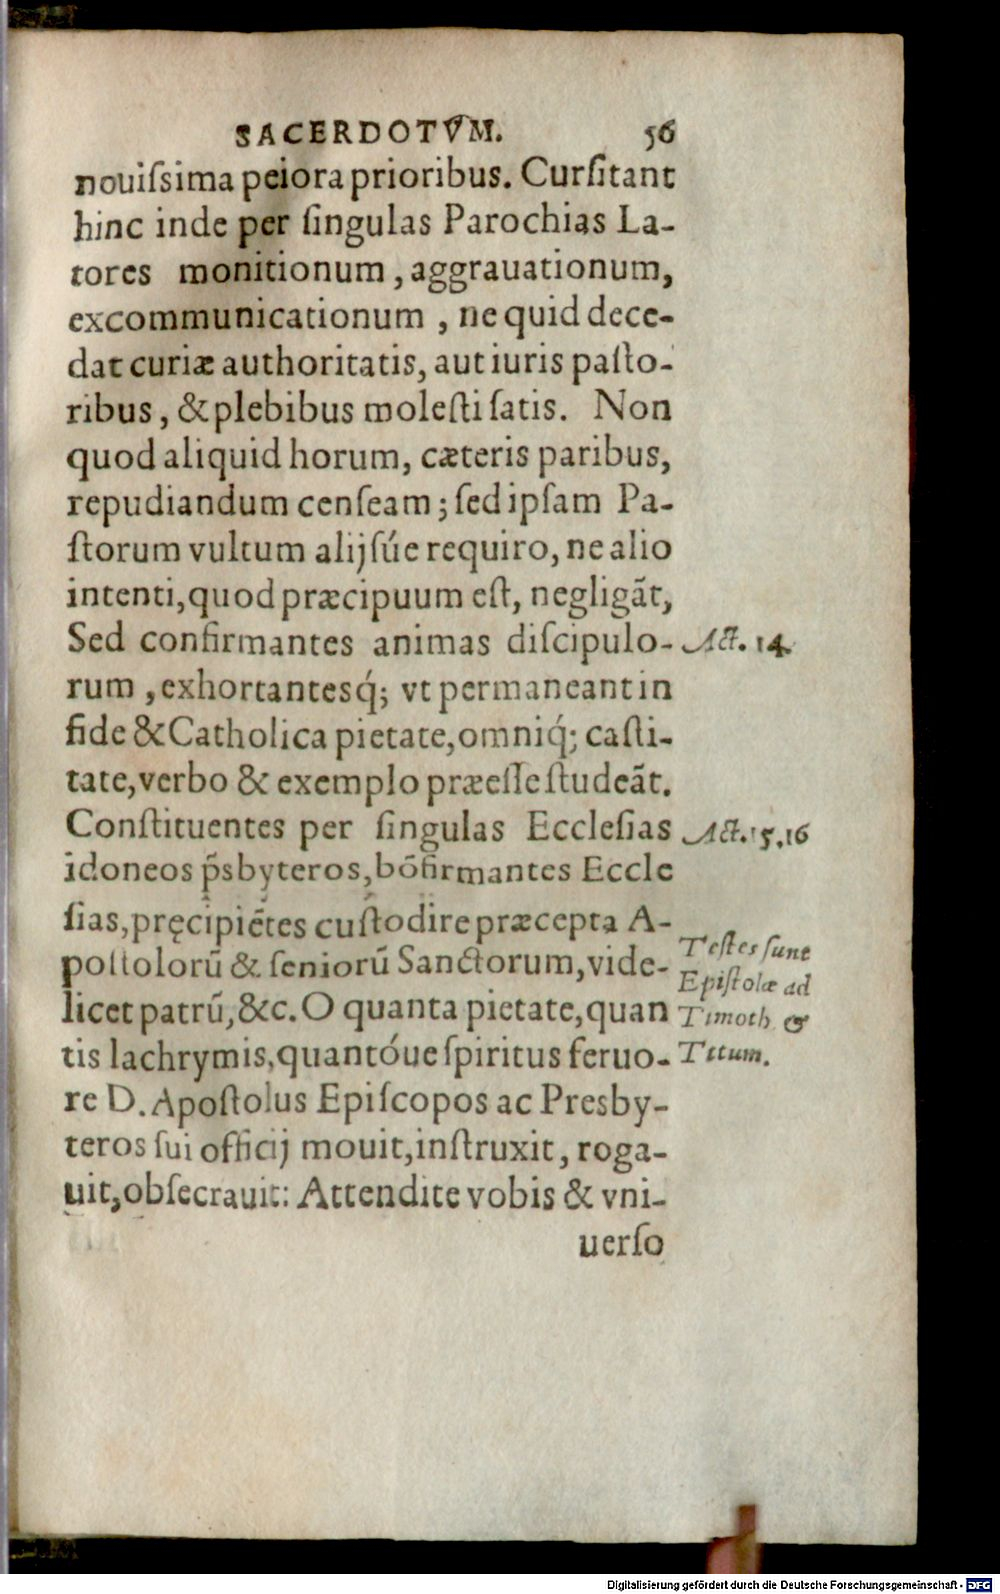 SACERDOTVM. 56
nouiſsima peiora prioribus. Curſitant
hinc inde per ſingulas Parochias La-
tores monitionum, aggrauationum,
excommunicationum, ne quid dece-
dat curiæ authoritatis, aut iuris paſto-
ribus, & plebibus moleſti ſatis. Non
quod aliquid horum, cæteris paribus,
repudiandum cenſeam; ſed ipſam Pa-
ſtorum vultum alijſúe requiro, ne alio
intenti, quod præcipuum eſt, negligãt,
Sed confirmantes animas diſcipulo- Act. 14.
rum, exhortantesq́; vt permaneant in
fide & Catholica pietate, omniq́; caſti-
tate, verbo & exemplo præeſſe ſtudeãt.
Conſtituentes per ſingulas Eccleſias Act. 15. 16
idoneos p̃sbyteros, bõfirmantes Eccle
ſias, pręcipiẽtes cuſtodire præcepta A-
poſtolorũ & ſeniorũ Sanctorum, vide-
licet patrũ, &c. O quanta pietate, quan
tis lachrymis, quantóue ſpiritus feruo-
re D. Apoſtolus Epiſcopos ac Presby-
teros ſui officij mouit, inſtruxit, roga-
uit, obſecrauit: Attendite vobis & vni-
uerſo
Teſtes ſunt
Epiſtolæ ad
Timoth &
Titum.
Digitalisierung gefördert durch die Deutsche Forschungsgemeinschaft - DFG